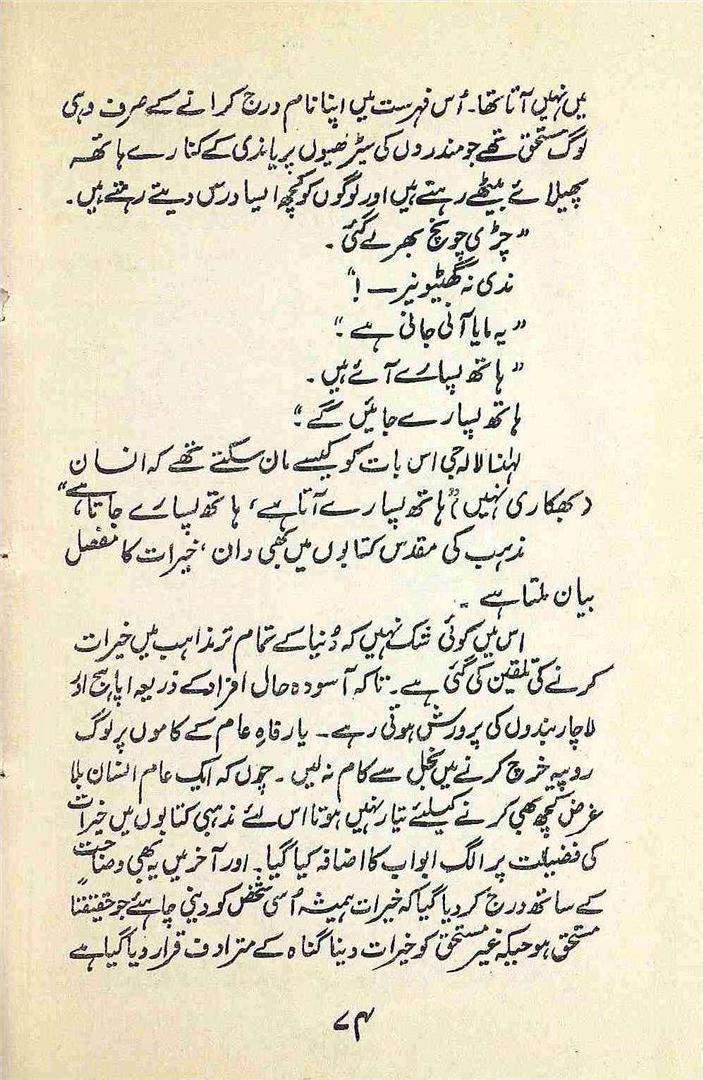 میں نہیں آتا تھا۔ اُس فہرست میں اپنا نام درج کرانے کے صرف وہی
لوگ مستحق تھے جو مندروں کی سیڑھیوں پر یا ندی کے کنارے ہاتھ
پھیلائے بیٹھے رہتے ہیں اور لوگوں کو کچھ ایسا درس دیتے رہتے ہیں۔
”چڑی چونچ بھر لے گئی۔
ندی نہ گھٹیو نیر — !“
”یہ مایا آنی جانی ہے۔“
”ہاتھ پسارے آئے ہیں۔
ہاتھ پسارے جائیں گے۔“
لہٰذا لالہ جی اس بات کو کیسے مان سکتے تھے کہ انسان
(بھکاری نہیں) ”ہاتھ پسارے آتا ہے، ہاتھ پسارے جاتا ہے“
مذہب کی مقدس کتابوں میں بھی دان، خیرات کا مفصل
بیان ملتا ہے۔
اس میں کوئی شک نہیں کہ دُنیا کے تمام تر مذاہب میں خیرات
کرنے کی تلقین کی گئی ہے۔ تاکہ آسودہ حال افراد کے ذریعہ اپاہج اور
لاچار بندوں کی پرورش ہوتی رہے۔ یا رفاہِ عام کے کاموں پر لوگ
روپیہ خرچ کرنے میں بخل سے کام نہ لیں۔ چوں کہ ایک عام انسان بلا
غرض کچھ بھی کرنے کیلئے تیار نہیں ہوتا اس لئے مذہبی کتابوں میں خیرات
کی فضیلت پر الگ ابواب کا اضافہ کیا گیا۔ اور آخر میں یہ بھی وضاحت
کے ساتھ درج کر دیا گیا کہ خیرات ہمیشہ اُسی شخص کو دینی چاہئے جو حقیقتاً
مستحق ہو جبکہ غیر مستحق کو خیرات دینا گناہ کے مترادف قرار دیا گیا ہے
۷۴